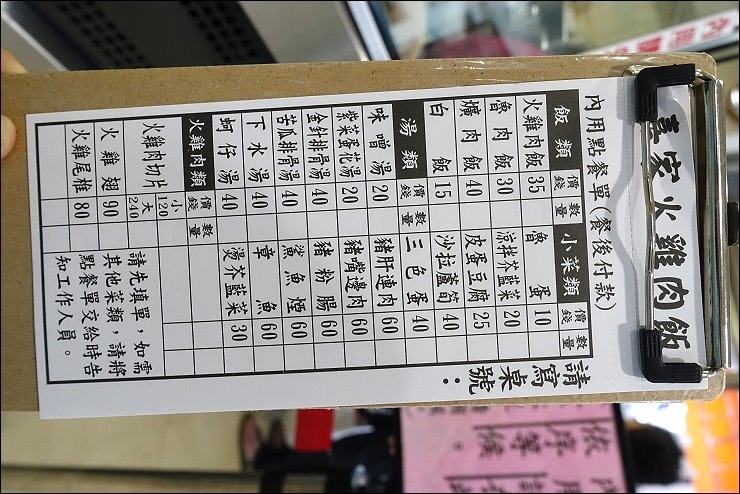 家火雞肉飯
內用點餐單(餐後付款)
請寫桌號：
飯類 價錢 數量 小菜類 價錢 數量
火雞肉飯 35 魯蛋 10
魯肉飯 30 涼拌芥藍菜 20
爌肉飯 40 皮蛋豆腐 25
白飯 15 沙拉蘆筍 40
湯類 價錢 數量 三色蛋 40
味噌湯 20 豬肝連肉 60
紫菜蛋花湯 20 豬嘴邊肉 60
金針排骨湯 40 豬粉腸 60
苦瓜排骨湯 40 鯊魚煙 60
下水湯 40 章魚 60
蚵仔湯 40 燙芥藍菜 30
火雞肉類 價錢 數量
火雞肉切片 小120 大240
火雞翅 90
火雞尾椎 80
請先填單，如需
其他菜類，請將
點餐單交給時告
知工作人員。
內用
依序等候。